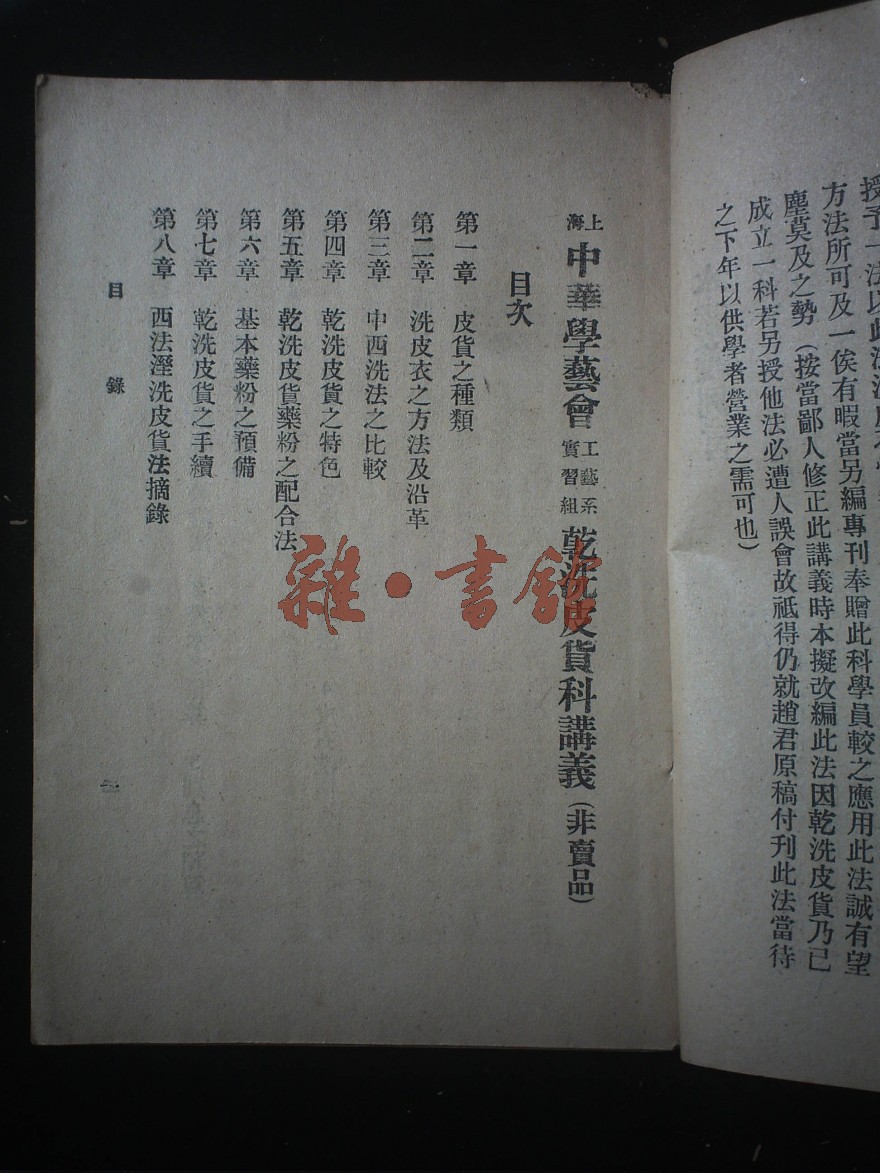 方法所可及一俟有暇當另編專刊奉贈此科學員較之應用此法誠有望
塵莫及之勢（按當鄙人修正此講義時本擬改編此法因乾洗皮貨乃已
成立一科若另授他法必遭人誤會故祗得仍就趙君原稿付刊此法當待
之下年以供學者營業之需可也）
上海中華學藝會工藝系實習組乾洗皮貨科講義（非賣品）
目次
第一章　皮貨之種類
第二章　洗皮衣之方法及沿革
第三章　中西洗法之比較
第四章　乾洗皮貨之特色
第五章　乾洗皮貨藥粉之配合法
第六章　基本藥粉之預備
第七章　乾洗皮貨之手續
第八章　西法溼洗皮貨法摘錄
目　錄
雜·書館